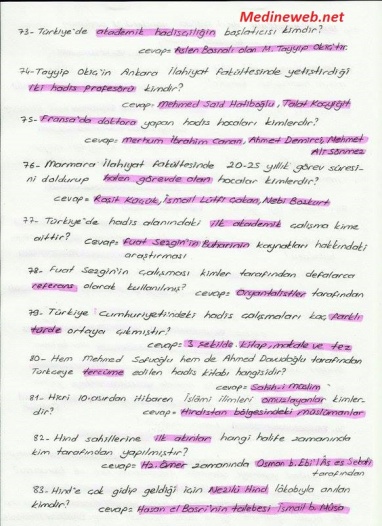 Medineweb.net
73- Türkiye'de akademik hadisçiliğin başlatıcısı kimdir?
cevap= Aslen Bosnalı olan M. Tayyip Okiç'tir.
74- Tayyip Okiç'in Ankara ilahiyat fakültesinde yetiştirdiği
iki hadis profesörü kimdir?
cevap= Mehmed Said Hatiboğlu, Talat Koçyiğit
75- Fransa'da doktora yapan hadis hocaları kimlerdir?
cevap= merhum İbrahim Canan, Ahmet Demirci, Mehmet
Ali Sönmez
76- Marmara İlahiyat Fakültesinde 20-25 yıllık görev süresi-
ni doldurup halen görevde olan hocalar kimlerdir?
cevap= Raşit Küçük, İsmail Lütfi Çakan, Nebi Bozkurt
77- Türkiye'de hadis alanındaki ilk akademik çalışma kime
aittir?
cevap= Fuat Sezgin'in Buharinin kaynakları hakkındaki
araştırması
78- Fuat Sezgin'in çalışması kimler tarafından defalarca
referans olarak kullanılmış? cevap= Oryantalistler tarafından
79- Türkiye Cumhuriyetindeki hadis çalışmaları kaç farklı
türde ortaya çıkmıştır?
cevap= 3 şekilde. Kitap, makale ve tez
80- Hem Mehmed Sofuoğlu hem de Ahmed Davudoğlu tarafından
Türkçeye tercüme edilen hadis kitabı hangisidir?
cevap= Sahih-i Müslim
81- Hicri 10. asırdan itibaren İslâmi ilimleri omuzlayanlar kimler-
dir? cevap= Hindistan bölgesindeki müslümanlar
82- Hind sahillerine ilk akınlar hangi halife zamanında
kim tarafından yapılmıştır?
cevap= Hz. Ömer zamanında Osman b. Ebi'l Âs es Sekafi
tarafından
83- Hind'e çok gidip geldiği için Nezilü Hind lâkabıyla anılan
kimdir?
cevap= Hasan el Basri'nin talebesi İsmail b. Mûsa